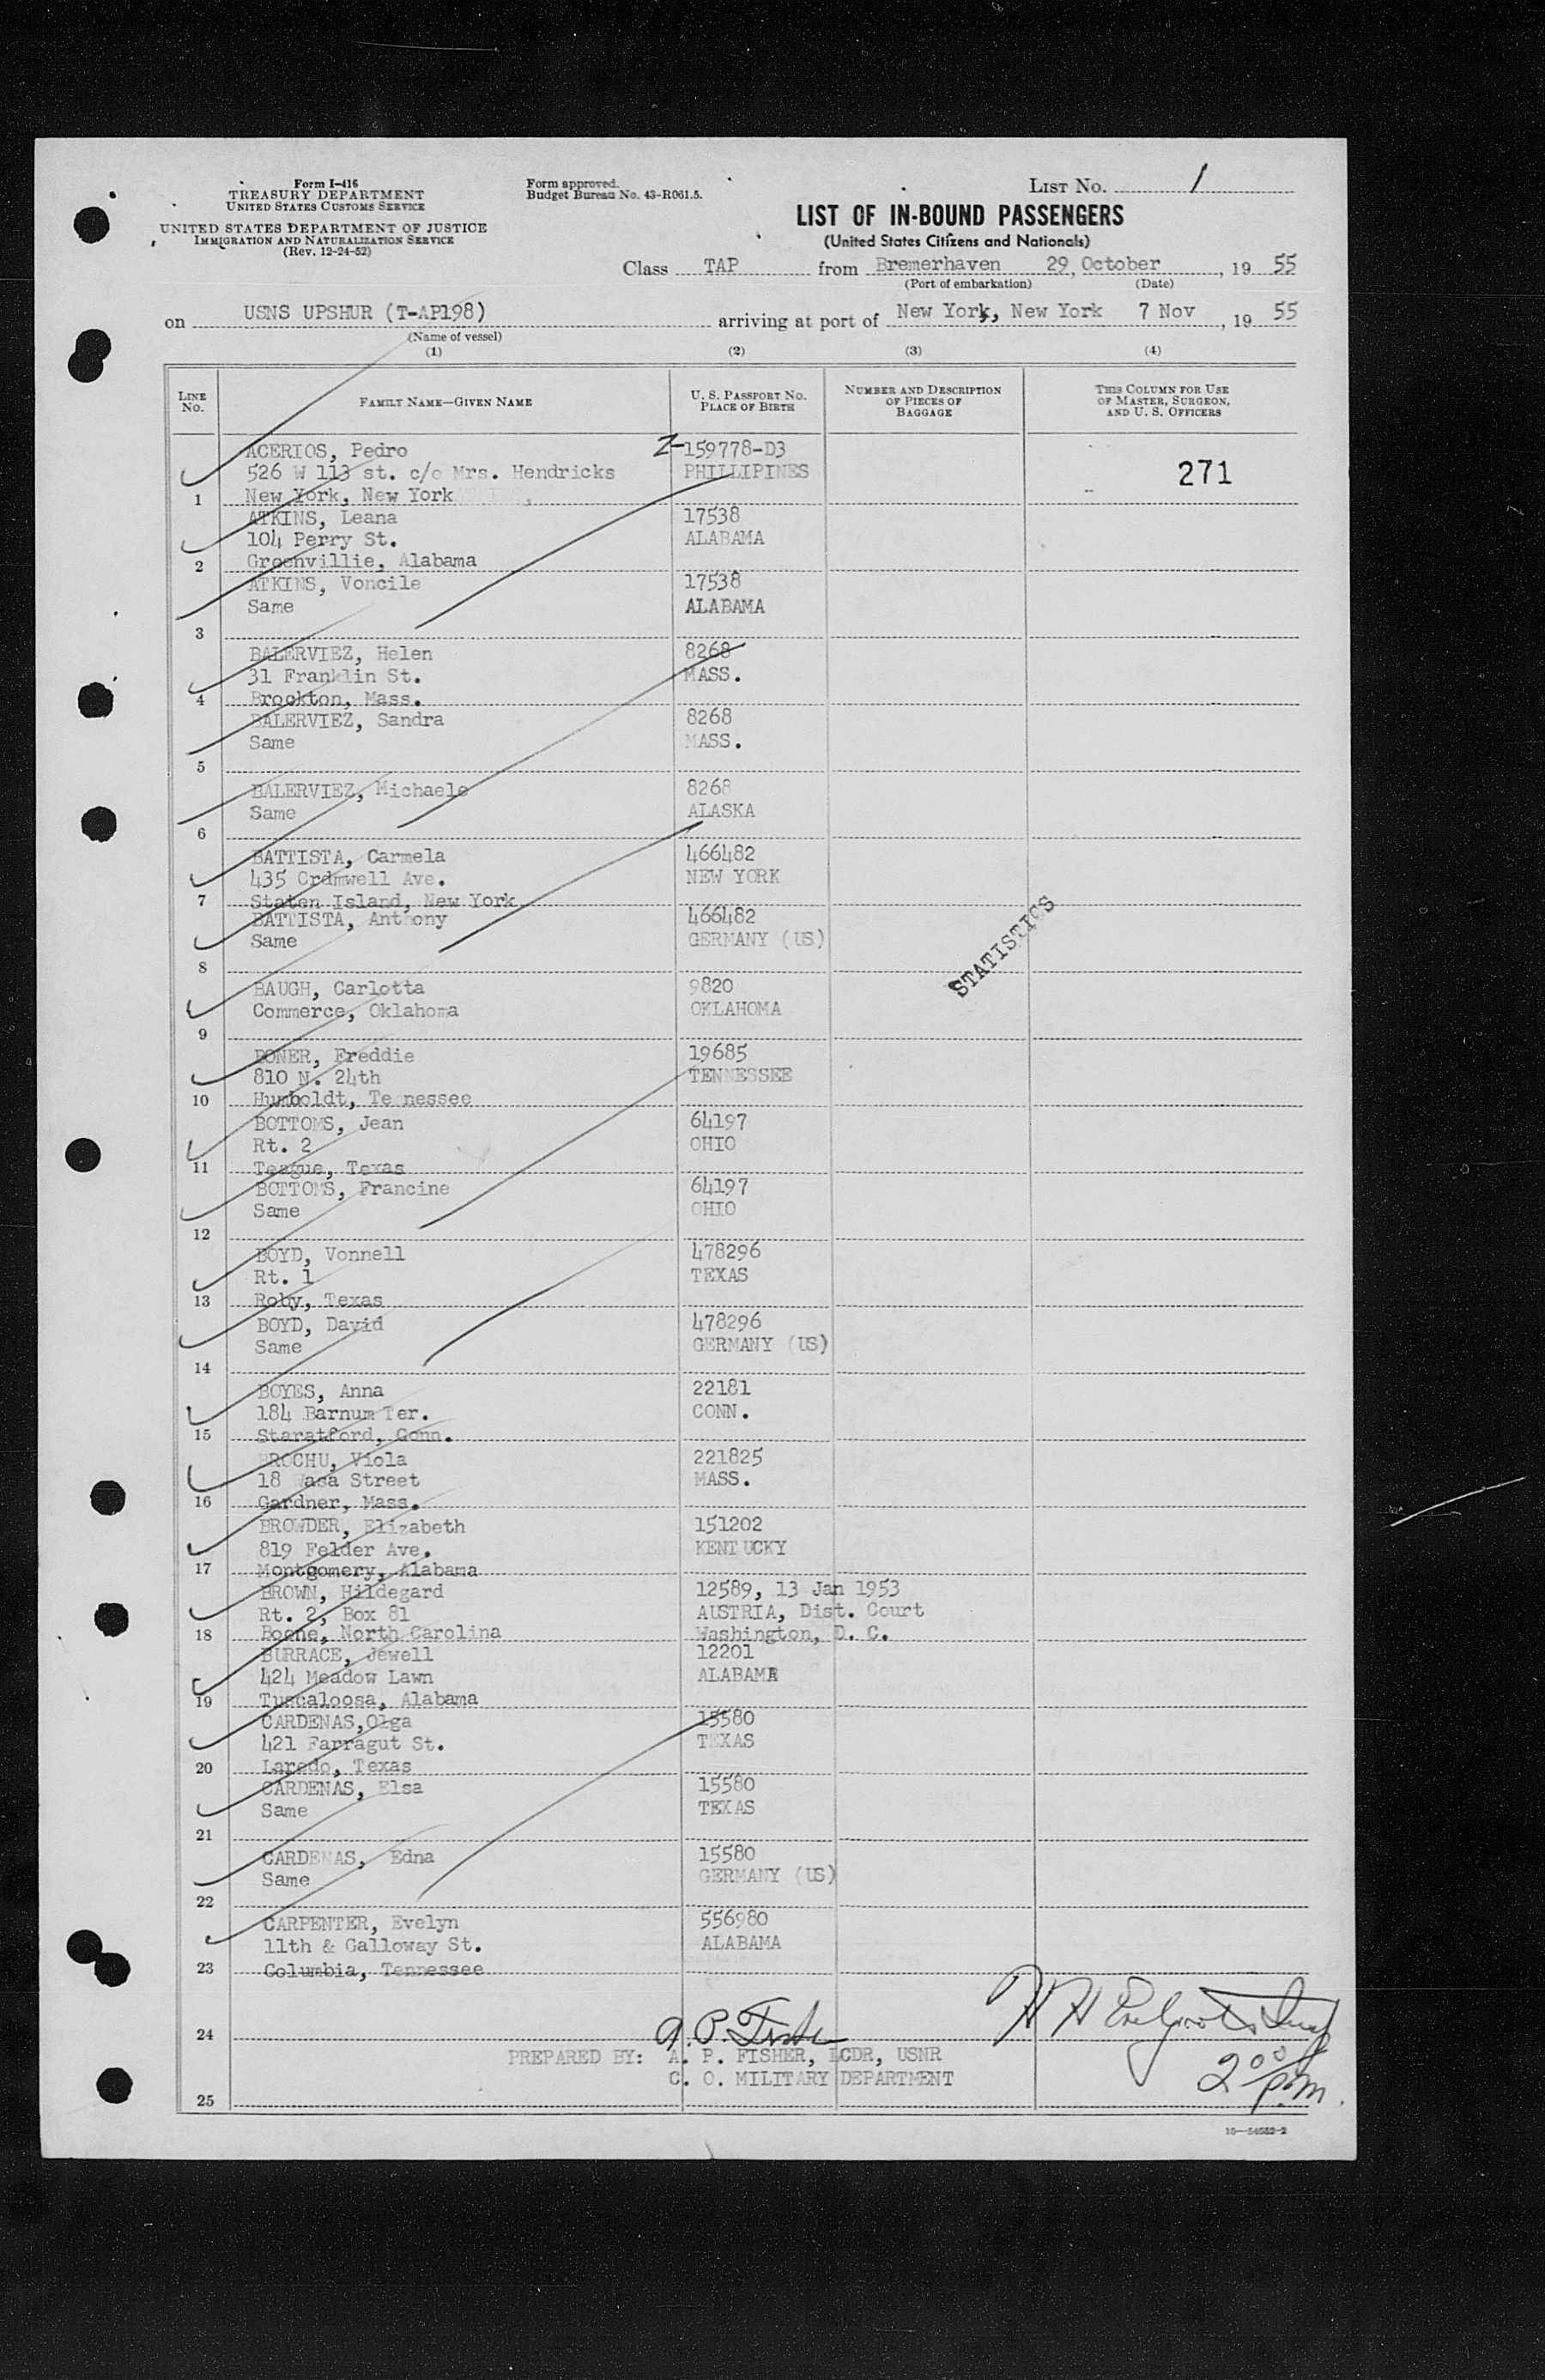 Form I-416
TREASURY DEPARTMENT
UNITED STATES CUSTOMS SERVICE
UNITED STATES DEPARTMENT OF JUSTICE
IMMIGRATION AND NATURALIZATION SERVICE
(Rev. 12-24-52)
Form approved.
Budget Bureau No. 43-R061.5.
LIST NO. 1
LIST OF IN-BOUND PASSENGERS
(United States Citizens and Nationals)
Class TAP from Bremerhaven 29, October, 19 55
(Port of embarkation) (Date)
on USNS UPSHUR (T-AP198) arriving at port of New York, New York 7 Nov, 19 55
(Name of vessel)
(1) (2) (3) (4)
LINE NO. FAMILY NAME—GIVEN NAME U. S. PASSPORT NO. PLACE OF BIRTH NUMBER AND DESCRIPTION OF PIECES OF BAGGAGE THIS COLUMN FOR USE OF MASTER, SURGEON, AND U. S. OFFICERS
ACERIOS, Pedro Z-159778-D3
526 W 113 st. c/o Mrs. Hendricks PHILLIPINES 271
1 New York, New York
ATKINS, Leana 17538
104 Perry St. ALABAMA
2 Greenvillie, Alabama
ATKINS, Voncile 17538
Same ALABAMA
3
BALERVIEZ, Helen 8268
31 Franklin St. MASS.
4 Brockton, Mass.
BALERVIEZ, Sandra 8268
Same MASS.
5
BALERVIEZ, Michaele 8268
Same ALASKA
6
BATTISTA, Carmela 466482
435 Cromwell Ave. NEW YORK
7 Staten Island, New York
BATTISTA, Anthony 466482
Same GERMANY (US)
8
STATISTICS
BAUGH, Carlotta 9820
Commerce, Oklahoma OKLAHOMA
9
BONER, Freddie 19685
810 N. 24th TENNESSEE
10 Humboldt, Tennessee
BOTTOMS, Jean 64197
Rt. 2 OHIO
11 Teague, Texas
BOTTOMS, Francine 64197
Same OHIO
12
BOYD, Vonnell 478296
Rt. 1 TEXAS
13 Roby, Texas
BOYD, David 478296
Same GERMANY (US)
14
BOYES, Anna 22181
184 Barnum Ter. CONN.
15 Staratford, Conn.
BROCHU, Viola 221825
18 Wasa Street MASS.
16 Gardner, Mass.
BROWDER, Elizabeth 151202
819 Felder Ave. KENTUCKY
17 Montgomery, Alabama
BROWN, Hildegard 12589, 13 Jan 1953
Rt. 2, Box 81 AUSTRIA, Dist. Court
18 Boone, North Carolina Washington, D. C.
BURRACE, Jewell 12201
424 Meadow Lawn ALABAMA
19 Tuscaloosa, Alabama
CARDENAS,Olga 15580
421 Farragut St. TEXAS
20 Laredo, Texas
CARDENAS, Elsa 15580
Same TEXAS
21
CARDENAS, Edna 15580
Same GERMANY (US)
22
CARPENTER, Evelyn 556980
11th & Galloway St. ALABAMA
23 Columbia, Tennessee
A. P. Fisher
24
PREPARED BY: A. P. FISHER, LCDR, USNR
C. O. MILITARY DEPARTMENT
2 00 p.m.
25
16—54552-2